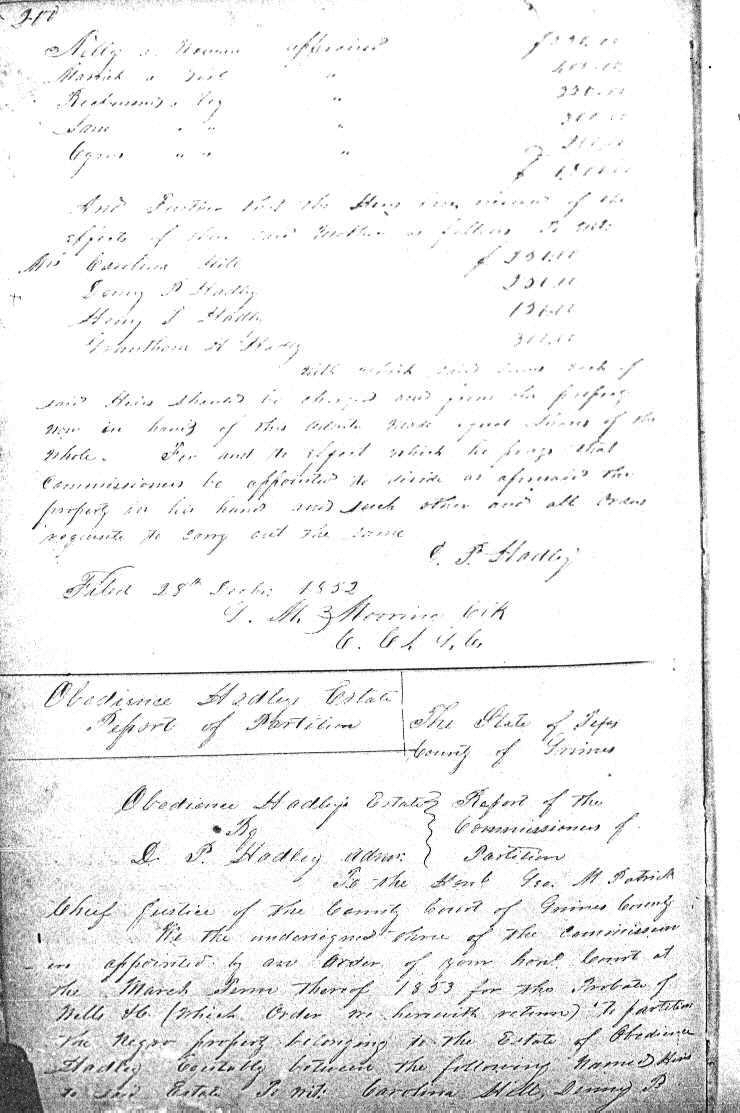 Nelly a Woman appraised
Marriah a Girl "
a Boy " 
Sam " " "
Cyrus " " " 200.00
$
And Further that the Heirs have received of the
effects of their said Mother as follows To wit:
Mrs Carolina Hill $ 250.00
Denny P Hadley 250.00
Henry Hadley 150.00
Hadley 300.00
With which said sums each of
said Heirs should be charged and from the property
now in hands of this made equal Shares of the
Whole. For and to effect which he prays that
Commissioners be appointed to divide as aforesaid the
property in his hands and such other and all Orders
requisite to carry out the same
D. P. Hadley
Filed 28th 1852
M. Mooring Clk
C. C. G. C.
Obedience Hadleys Estate
Report of Partition
The State of Texas
County of Grimes
Obedience Hadley's Estate Report of the
By Commissioners of
D. P. Hadley admr. Partition
To the Honl Geo. M Patrick
Chief Justice of the County Court of Grimes County
We the undersigned three of the Commission
ers appointed by an Order of your honl Court at
the March Term thereof 1853 for the Probate of
Wills &c (which Order we herewith return) To partition
the Negro property belonging to the Estate of Obedience
Hadley Equitably between the following Named Heirs
to said Estate To wit: Carolina Hill, Denny P